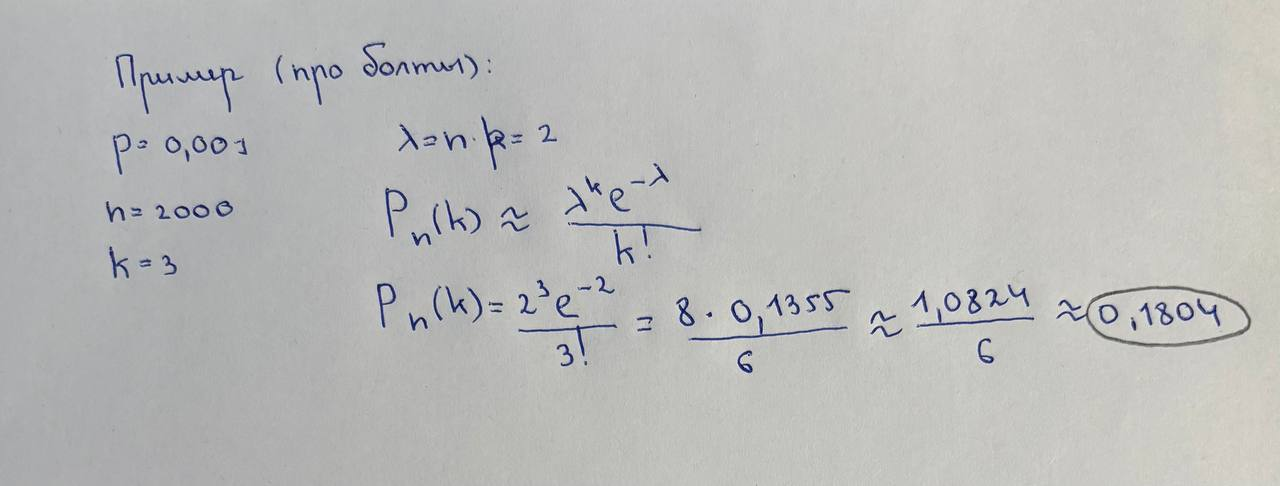 Пример (про болты):
p = 0,001
λ = n · p = 2
n = 2000
Pₙ(k) ≈ λᵏe^−λ / k!
k = 3
Pₙ(k) = 2³e^−2 / 3! = 8 · 0,1355 / 6 ≈ 1,0824 / 6 ≈ 0,1804